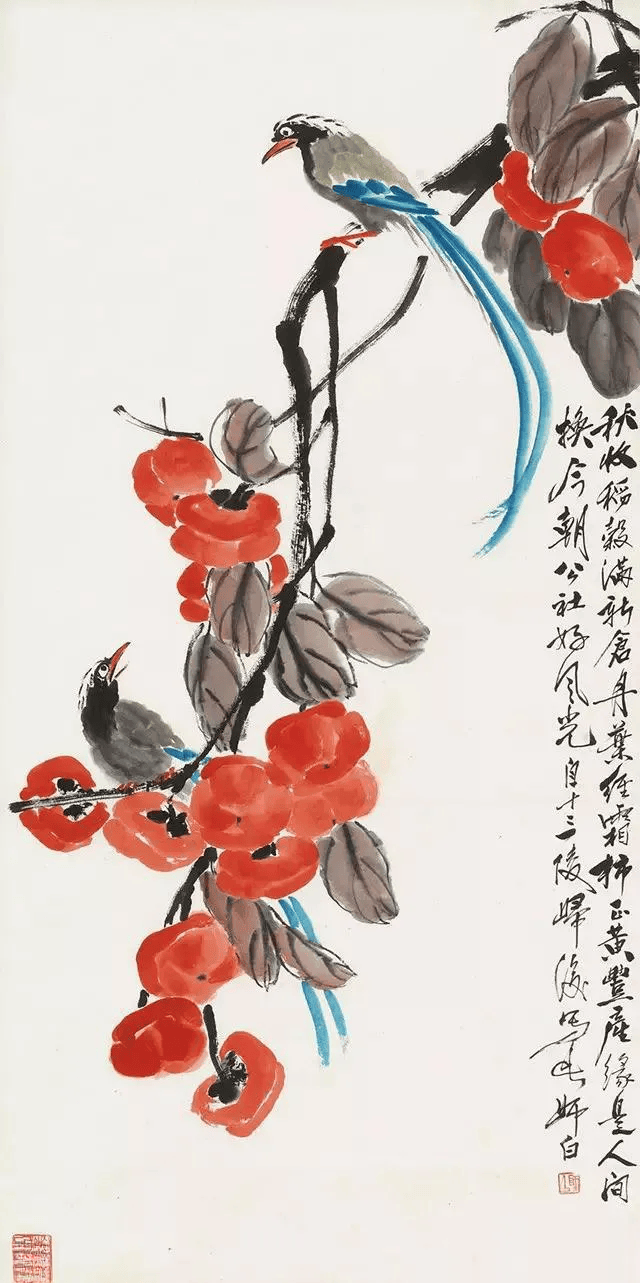 秋收稻穀滿新倉丹葉經霜柿正黃豐產緣是人间
換今朝公社好风光自十三陵歸後寫 师白